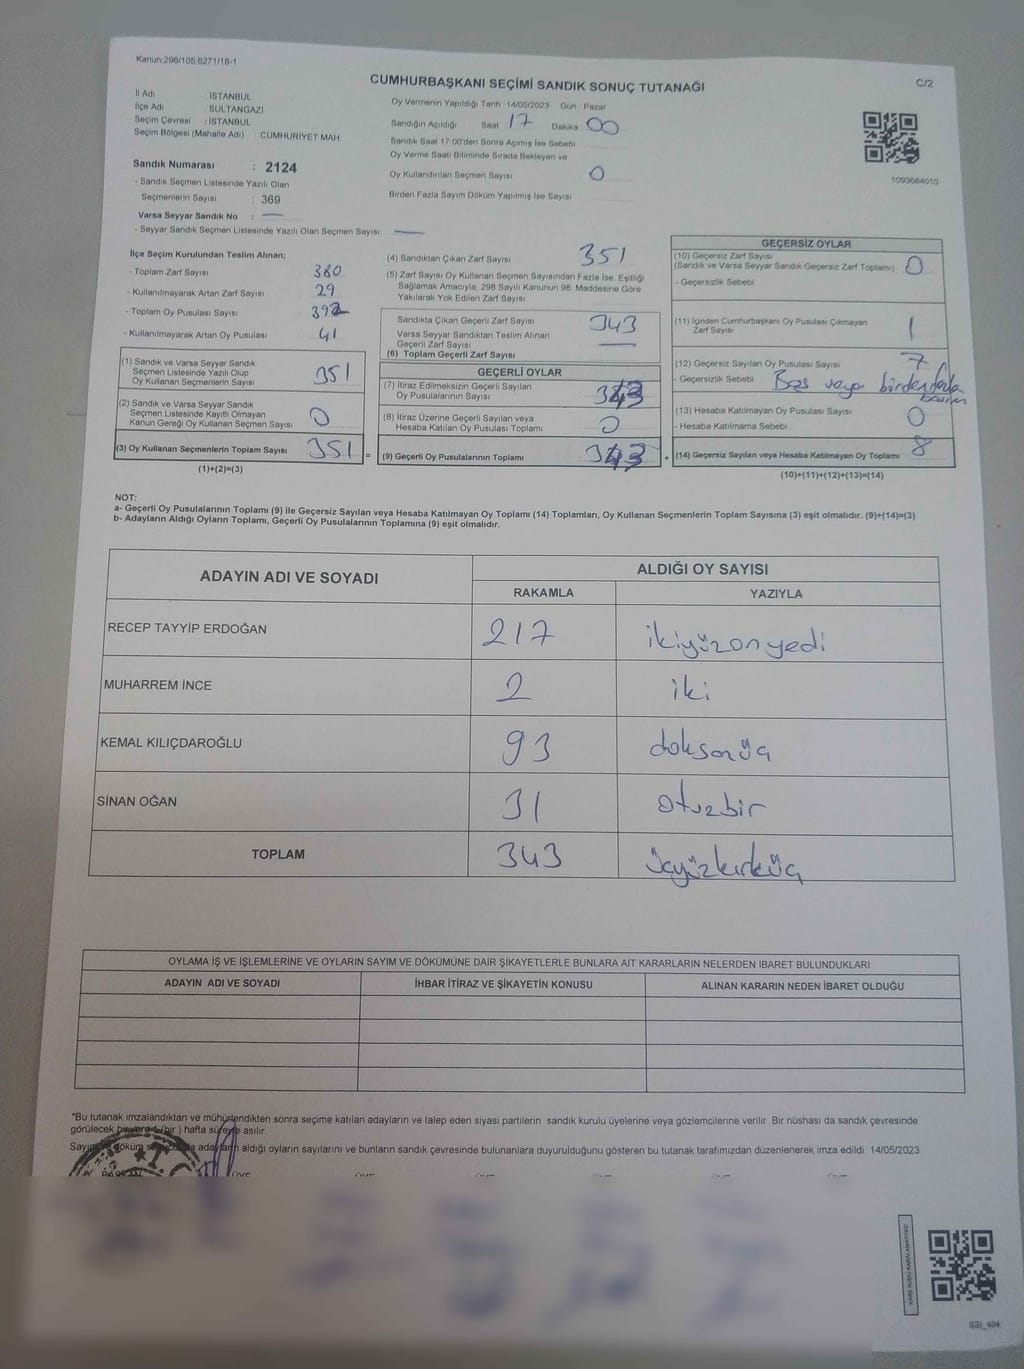 Kanun:298/105,6271/18-1
CUMHURBAŞKANI SEÇİMİ SANDIK SONUÇ TUTANAĞI
C/2
İl Adı : İSTANBUL
İlçe Adı : SULTANGAZİ
Seçim Çevresi : İSTANBUL
Seçim Bölgesi (Mahalle Adı) : CUMHURİYET MAH
Sandık Numarası : 2124
- Sandık Seçmen Listesinde Yazılı Olan
Seçmenlerin Sayısı : 369
Varsa Seyyar Sandık No : —
- Seyyar Sandık Seçmen Listesinde Yazılı Olan Seçmen Sayısı: —
Oy Vermenin Yapıldığı Tarih :14/05/2023 Gün : Pazar
Sandığın Açıldığı Saat 17 Dakika 00
Sandık Saat 17:00'den Sonra Açımış İse Sebebi
Oy Verme Saati Bitiminde Sırada Bekleyen ve
Oy Kullandırılan Seçmen Sayısı 0
Birden Fazla Sayım Döküm Yapılmış İse Sayısı
1093684010
İlçe Seçim Kurulundan Teslim Alınan;
- Toplam Zarf Sayısı 380
- Kullanılmayarak Artan Zarf Sayısı 29
- Toplam Oy Pusulası Sayısı 392
- Kullanılmayarak Artan Oy Pusulası 41
(1) Sandık ve Varsa Seyyar Sandık
Seçmen Listesinde Yazılı Olup
Oy Kullanan Seçmenlerin Sayısı 351
(2) Sandık ve Varsa Seyyar Sandık
Seçmen Listesinde Kayıtlı Olmayan
Kanun Gereği Oy Kullanan Seçmen Sayısı 0
(3) Oy Kullanan Seçmenlerin Toplam Sayısı 351 =
(1)+(2)=(3)
(4) Sandıktan Çıkan Zarf Sayısı 351
(5) Zarf Sayısı Oy Kullanan Seçmen Sayısından Fazla İse, Eşitliği
Sağlamak Amacıyla, 298 Sayılı Kanunun 98. Maddesine Göre
Yakılarak Yok Edilen Zarf Sayısı
Sandıkta Çıkan Geçerli Zarf Sayısı 343
Varsa Seyyar Sandıktan Teslim Alınan
Geçerli Zarf Sayısı —
(6) Toplam Geçerli Zarf Sayısı
GEÇERLİ OYLAR
(7) İtiraz Edilmeksizin Geçerli Sayılan
Oy Pusulalarının Sayısı 343
(8) İtiraz Üzerine Geçerli Sayılan veya
Hesaba Katılan Oy Pusulası Toplamı 0
(9) Geçerli Oy Pusulalarının Toplamı 343 +
GEÇERSİZ OYLAR
(10) Geçersiz Zarf Sayısı
(Sandık ve Varsa Seyyar Sandık Geçersiz Zarf Toplamı) 0
- Geçersizlik Sebebi
(11) İçinden Cumhurbaşkanı Oy Pusulası Çıkmayan
Zarf Sayısı 1
(12) Geçersiz Sayılan Oy Pusulası Sayısı 7
- Geçersizlik Sebebi Boş veya birden fazla
basım
(13) Hesaba Katılmayan Oy Pusulası Sayısı 0
- Hesaba Katılmama Sebebi
(14) Geçersiz Sayılan veya Hesaba Katılmayan Oy Toplamı 8
(10)+(11)+(12)+(13)=(14)
NOT:
a- Geçerli Oy Pusulalarının Toplamı (9) ile Geçersiz Sayılan veya Hesaba Katılmayan Oy Toplamı (14) Toplamları, Oy Kullanan Seçmenlerin Toplam Sayısına (3) eşit olmalıdır. (9)+(14)=(3)
b- Adayların Aldığı Oyların Toplamı, Geçerli Oy Pusulalarının Toplamına (9) eşit olmalıdır.
ADAYIN ADI VE SOYADI
ALDIĞI OY SAYISI
RAKAMLA YAZIYLA
RECEP TAYYİP ERDOĞAN 217 ikiyüzonyedi
MUHARREM İNCE 2 iki
KEMAL KILIÇDAROĞLU 93 doksanüç
SİNAN OĞAN 31 otuzbir
TOPLAM 343 üçyüzkırküç
OYLAMA İŞ VE İŞLEMLERİNE VE OYLARIN SAYIM VE DÖKÜMÜNE DAİR ŞİKAYETLERLE BUNLARA AİT KARARLARIN NELERDEN İBARET BULUNDUKLARI
ADAYIN ADI VE SOYADI İHBAR İTİRAZ VE ŞİKAYETİN KONUSU ALINAN KARARIN NEDEN İBARET OLDUĞU
*Bu tutanak imzalandıktan ve mühürlendikten sonra seçime katılan adayların ve talep eden siyasi partilerin sandık kurulu üyelerine veya gözlemcilerine verilir. Bir nüshası da sandık çevresinde
görülecek bir yere 1 (bir) hafta süreyle asılır.
adayların aldığı oyların sayılarını ve bunların sandık çevresinde bulunanlara duyurulduğunu gösteren bu tutanak tarafımızdan düzenlenerek imza edildi. 14/05/2023
SSI_404